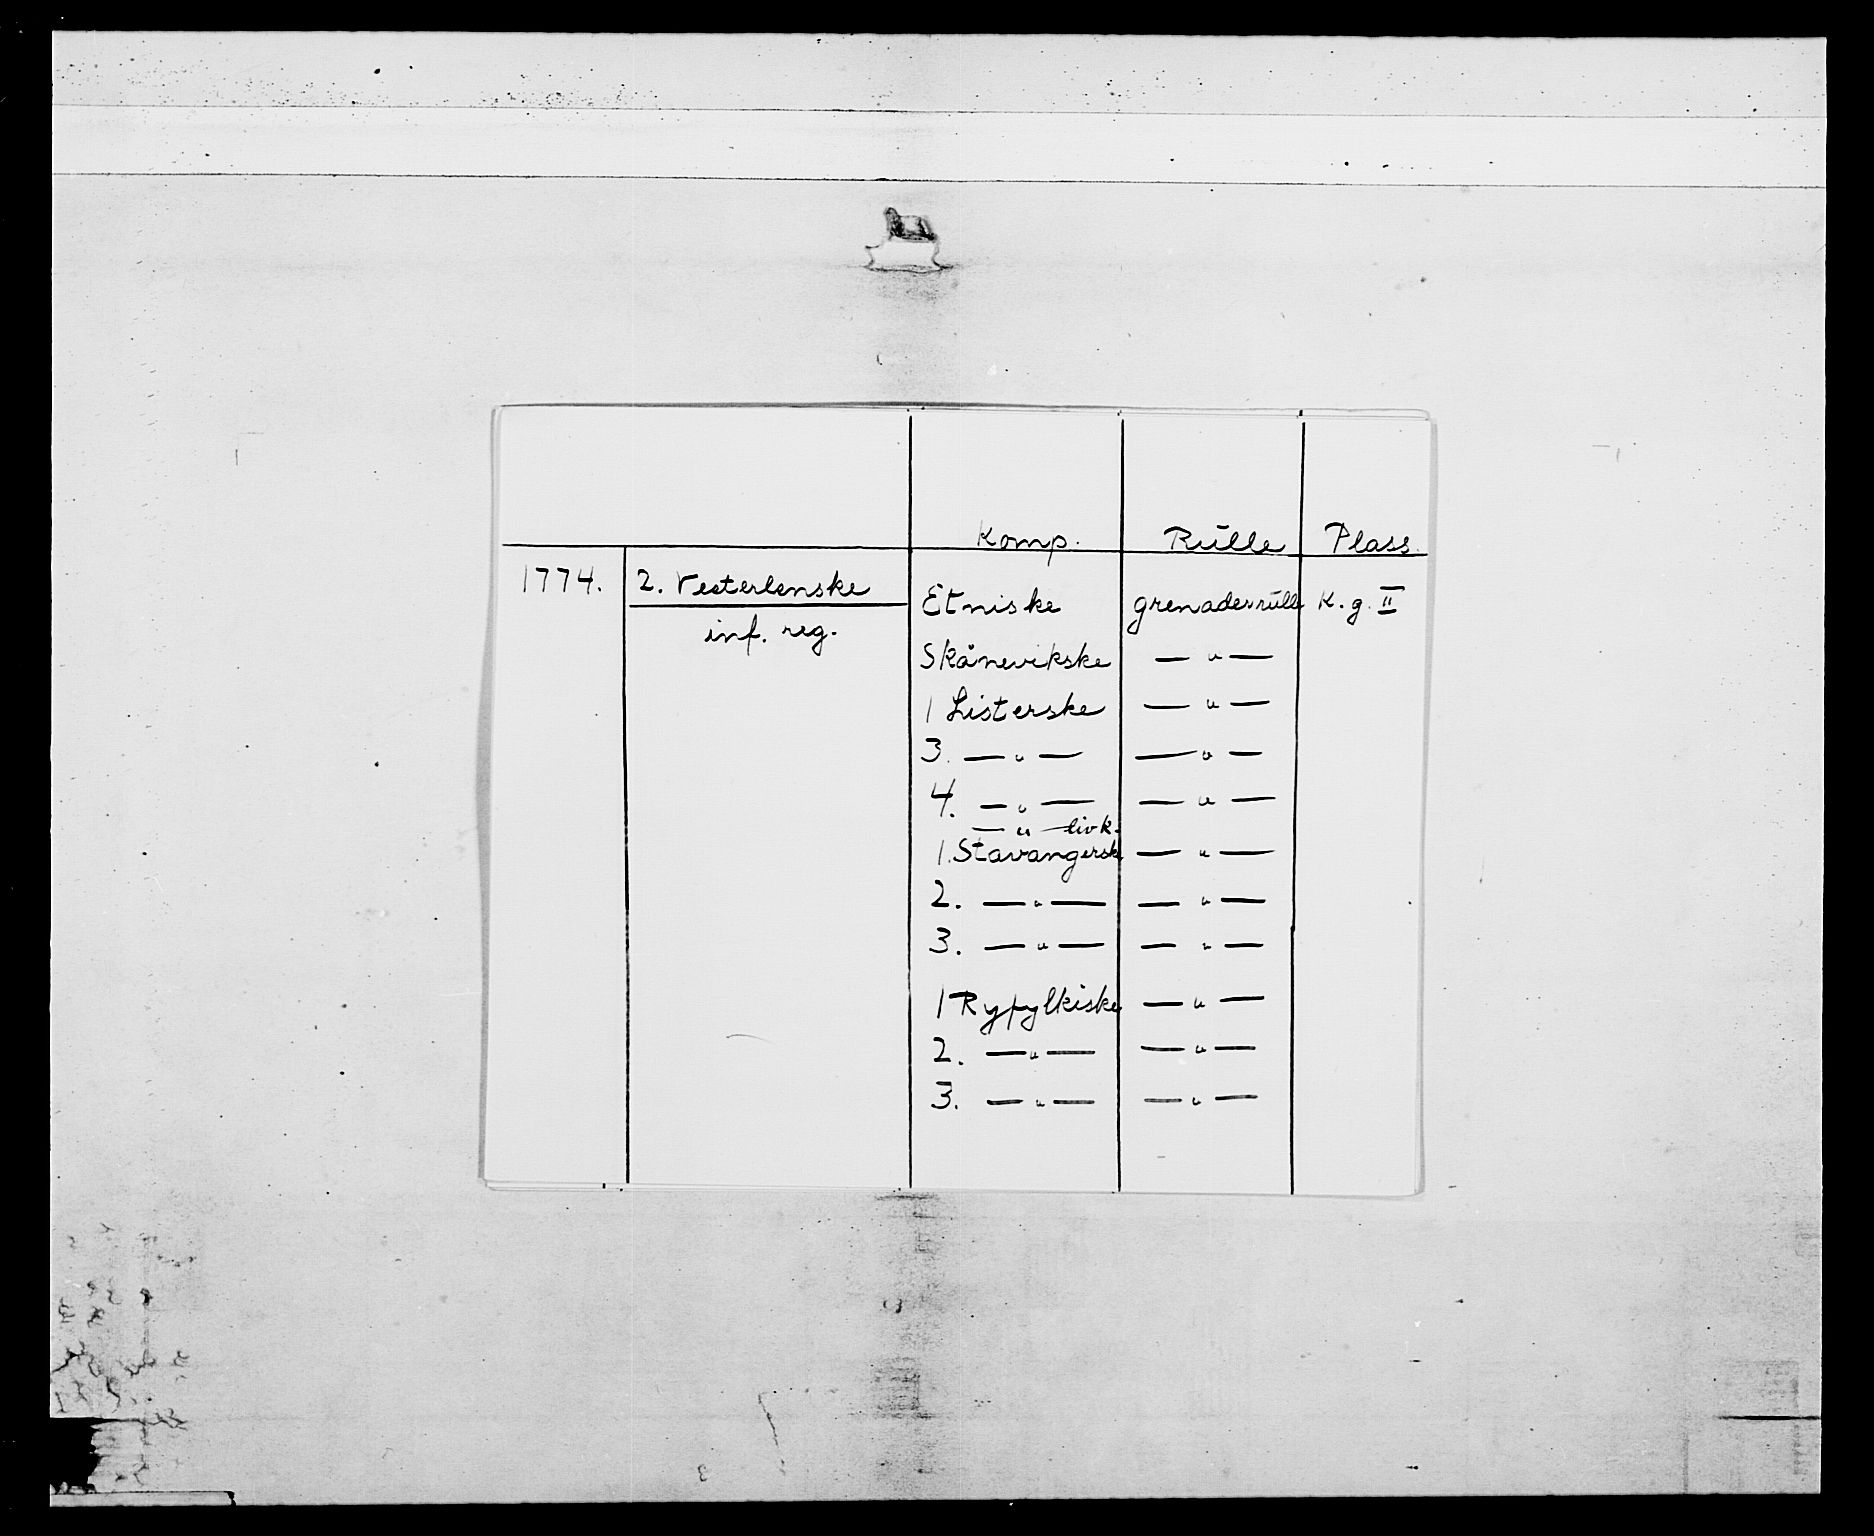 Komp. Rulle Plass.
1774. 2. Vesterlenske Etniske grenaderrulle K. g. II
inf. reg.
Skånevikske — " —
1 Listerske — " —
3. — " — — " —
4. — " — — " —
— " — livk.
1. Stavangerske — " —
2. — " — — " —
3. — " — — " —
1 Ryfylkiske — " —
2. — " — — " —
3. — " — — " —